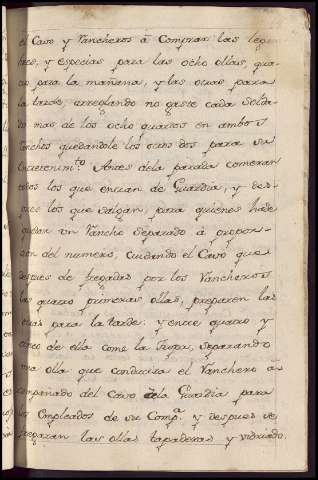 el Cavo y Rancheros â Comprar las legum
bres, y especias para las ocho ollas, qua
tro para la mañana, y las otras para
la tarde; arreglando no gaste cada Solda
do mas de los ocho quartos en ambos
ranchos quedandole los otros dos para su
entretenimto. Antes dela parada comeran
todos los que entran de Guardia, y des
pues los que salgan, para quienes hade
quedar un Rancho separado â propor-
cion del numero, cuidando el Cavo que
despues de fregadas por los Rancheros
las quatro primeras ollas, preparen las
otras para la tarde: y entre quatro y
cinco de ella come la Tropa, separando
una olla que conducira el Ranchero a
compañado del Cavo dela Guardia para
los Empleados de su Compa. y despues se
fregaran las ollas tapaderas y vidriado.